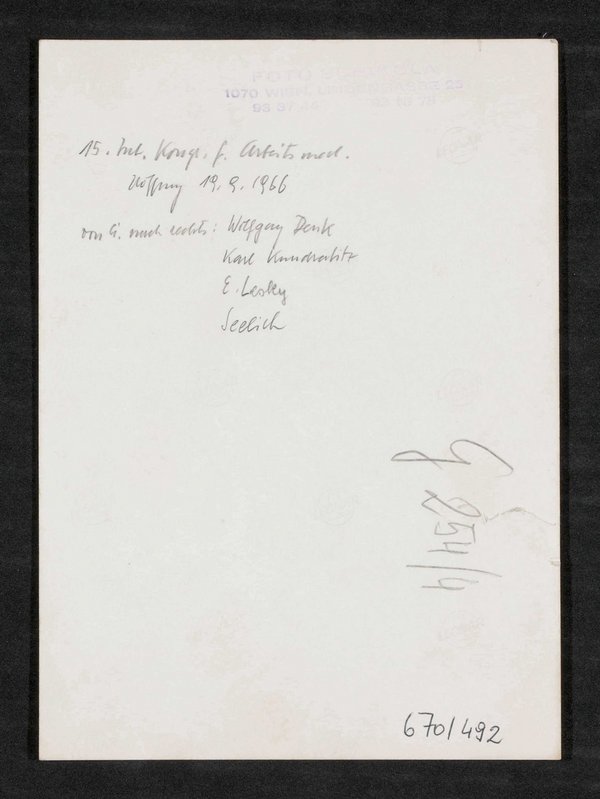 FOTO
1070 WIEN, LINDENGASSE 25
93
15. Int. Kongr. f. Arbeitsmed.
Hofburg 19.9.1966
von li. nach rechts: Wolfgang Denk
Karl Kundratitz
E. Lesky
Seelich
G 254/4
670/492